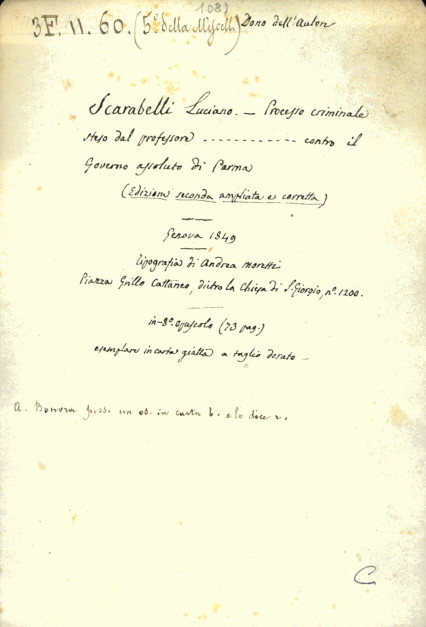 1081
3F. 11. 60. (5ª della Miscell.) Dono dell'Autore
Scarabelli Luciano. — Processo criminale
steso dal professore ------------ contro il
Governo assoluto di Parma
(Edizione seconda ampliata e corretta)
Genova 1849
tipografia di Andrea Moretti
Piazza Grillo Cattaneo, dietro la Chiesa di S. Giorgio, nº. 1200.
in-8º. opuscolo (73 pag.)
esemplare in carta gialla a taglio dorato —
A. Bonora un es. in carta b. e lo dice r.
C